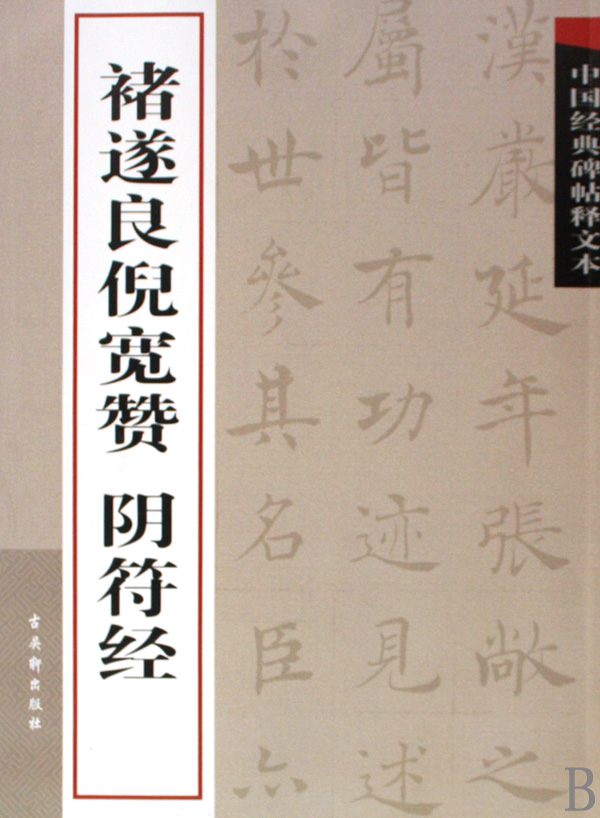 中国经典碑帖释文本
漢嚴延年張敞之
屬皆有功迹見述
於世參其名臣亦
褚遂良倪宽赞 阴符经
古吴轩出版社
B